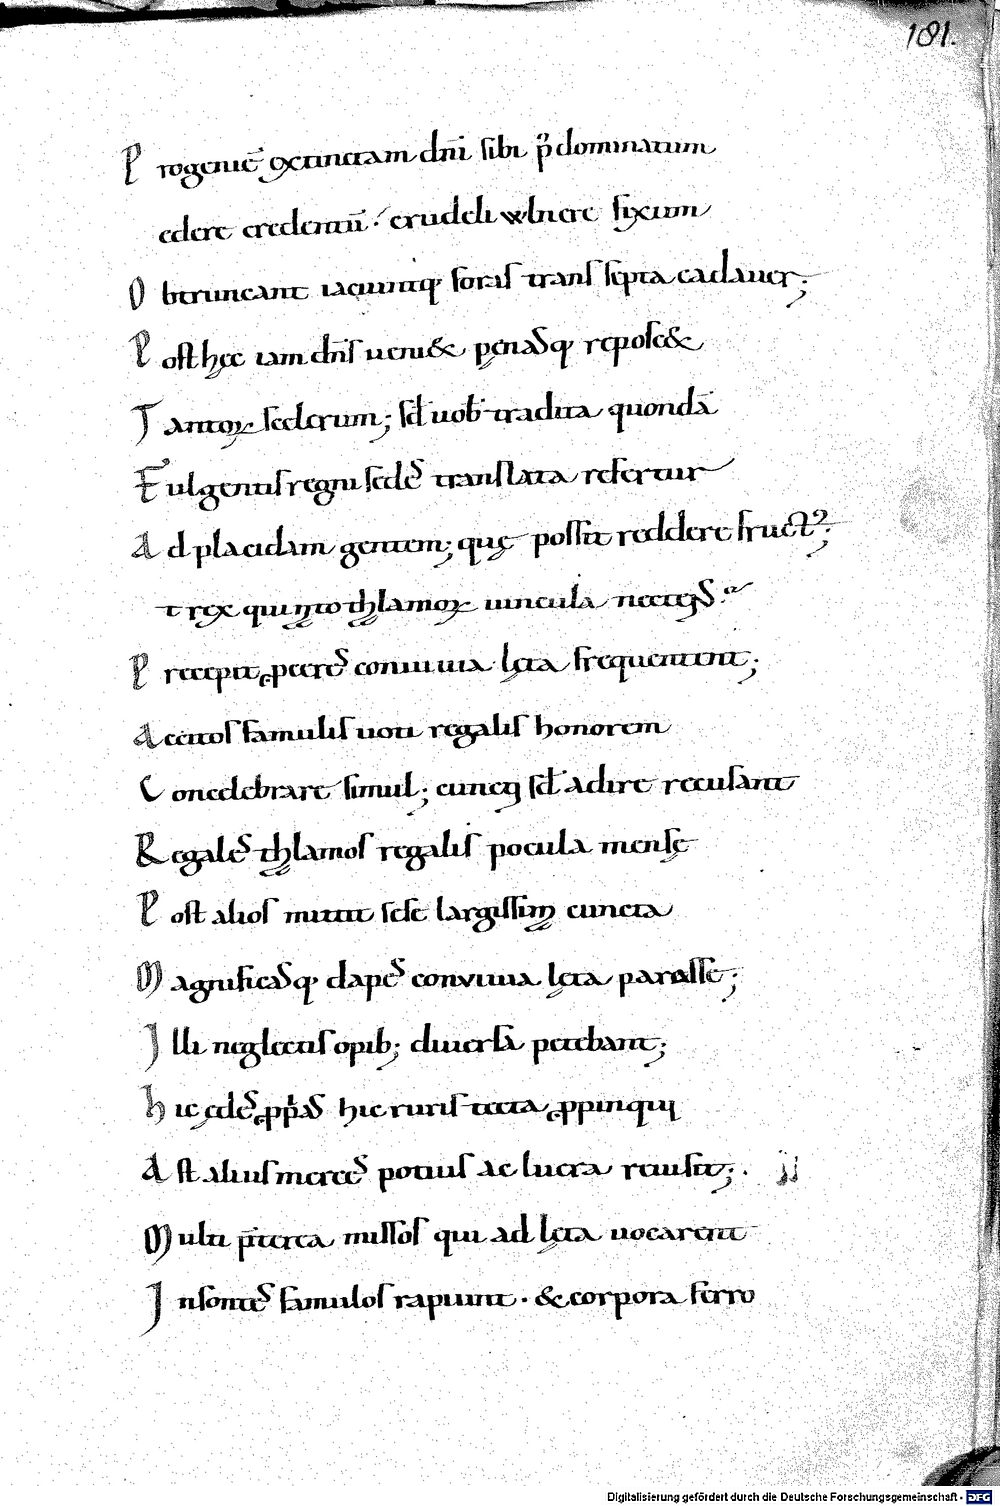 181.
P rogenie᷒ extinctam dn̄i sibi p̄ dominatum
edere credentū· crudeli wlnere fixum
O btruncant iaciuntq; foris trans septa cadauer;
P ost hęc iam dn̄s ueni& pęnasq; reposc&
T antoꝝ scelerum; sꝫ uob tradita quondā
F ulgentis regni sedes translata refertur
A d placidam gentem; quę possit reddere fructꝰ;
t rex qui nato thalamoꝝ uincula nectens
P recepit ꝓceres conuiuia lęta frequentent;
A ccitos famulis uoti regalis honorem
C oncelebrare simul; cuncti sꝫ adire recusant
R egales thalamos regalis pocula mensę
P ost alios mittit sese largissimꝰ cuncta
M agnificasq; dapes convivia lęta parasse;
I lli neglectis opib; diuersa petebant;
h ic ędes ꝓprias hic ruris tecta ꝓpinqui
A st alius merces potius ac lucra reuisit;·
M ulti p̄terea missos qui ad lęta uocarent
I nsontes famulos rapiunt· & corpora ferro
Digitalisierung gefördert durch die Deutsche Forschungsgemeinschaft - DFG